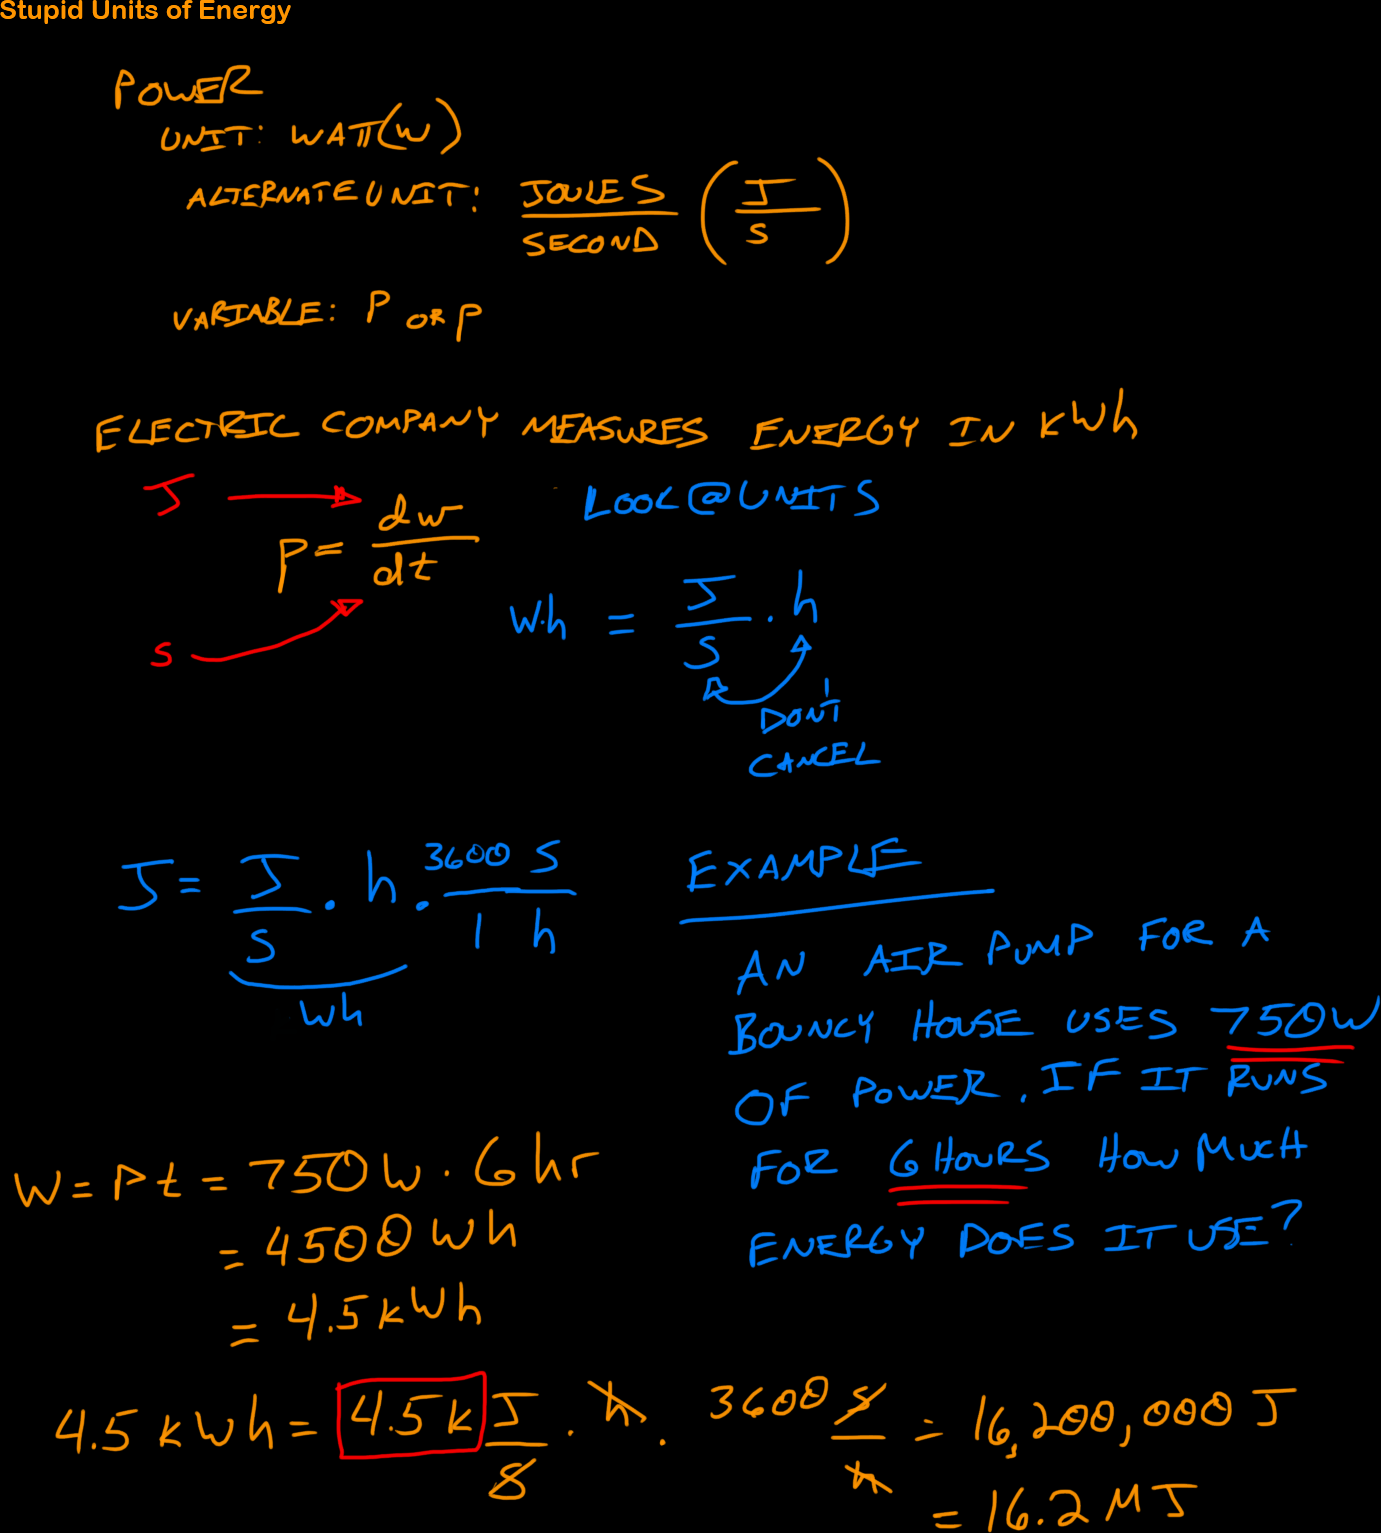 Stupid Units of Energy
POWER
UNIT: WATT (W)
ALTERNATE UNIT: JOULES/SECOND (J/s)
VARIABLE: P OR p
ELECTRIC COMPANY MEASURES ENERGY IN kWh
J
p = dw/dt
s
LOOK @ UNITS
W·h = J/s · h
DON'T
CANCEL
J = J/s · h · 3600 s/1 h
Wh
EXAMPLE
AN AIR PUMP FOR A
BOUNCY HOUSE USES 750W
OF POWER. IF IT RUNS
FOR 6 HOURS HOW MUCH
ENERGY DOES IT USE?
W = Pt = 750W · 6hr
= 4500 Wh
= 4.5 kWh
4.5 kWh = 4.5k J/s · h · 3600 s/h = 16,200,000 J
= 16.2 MJ